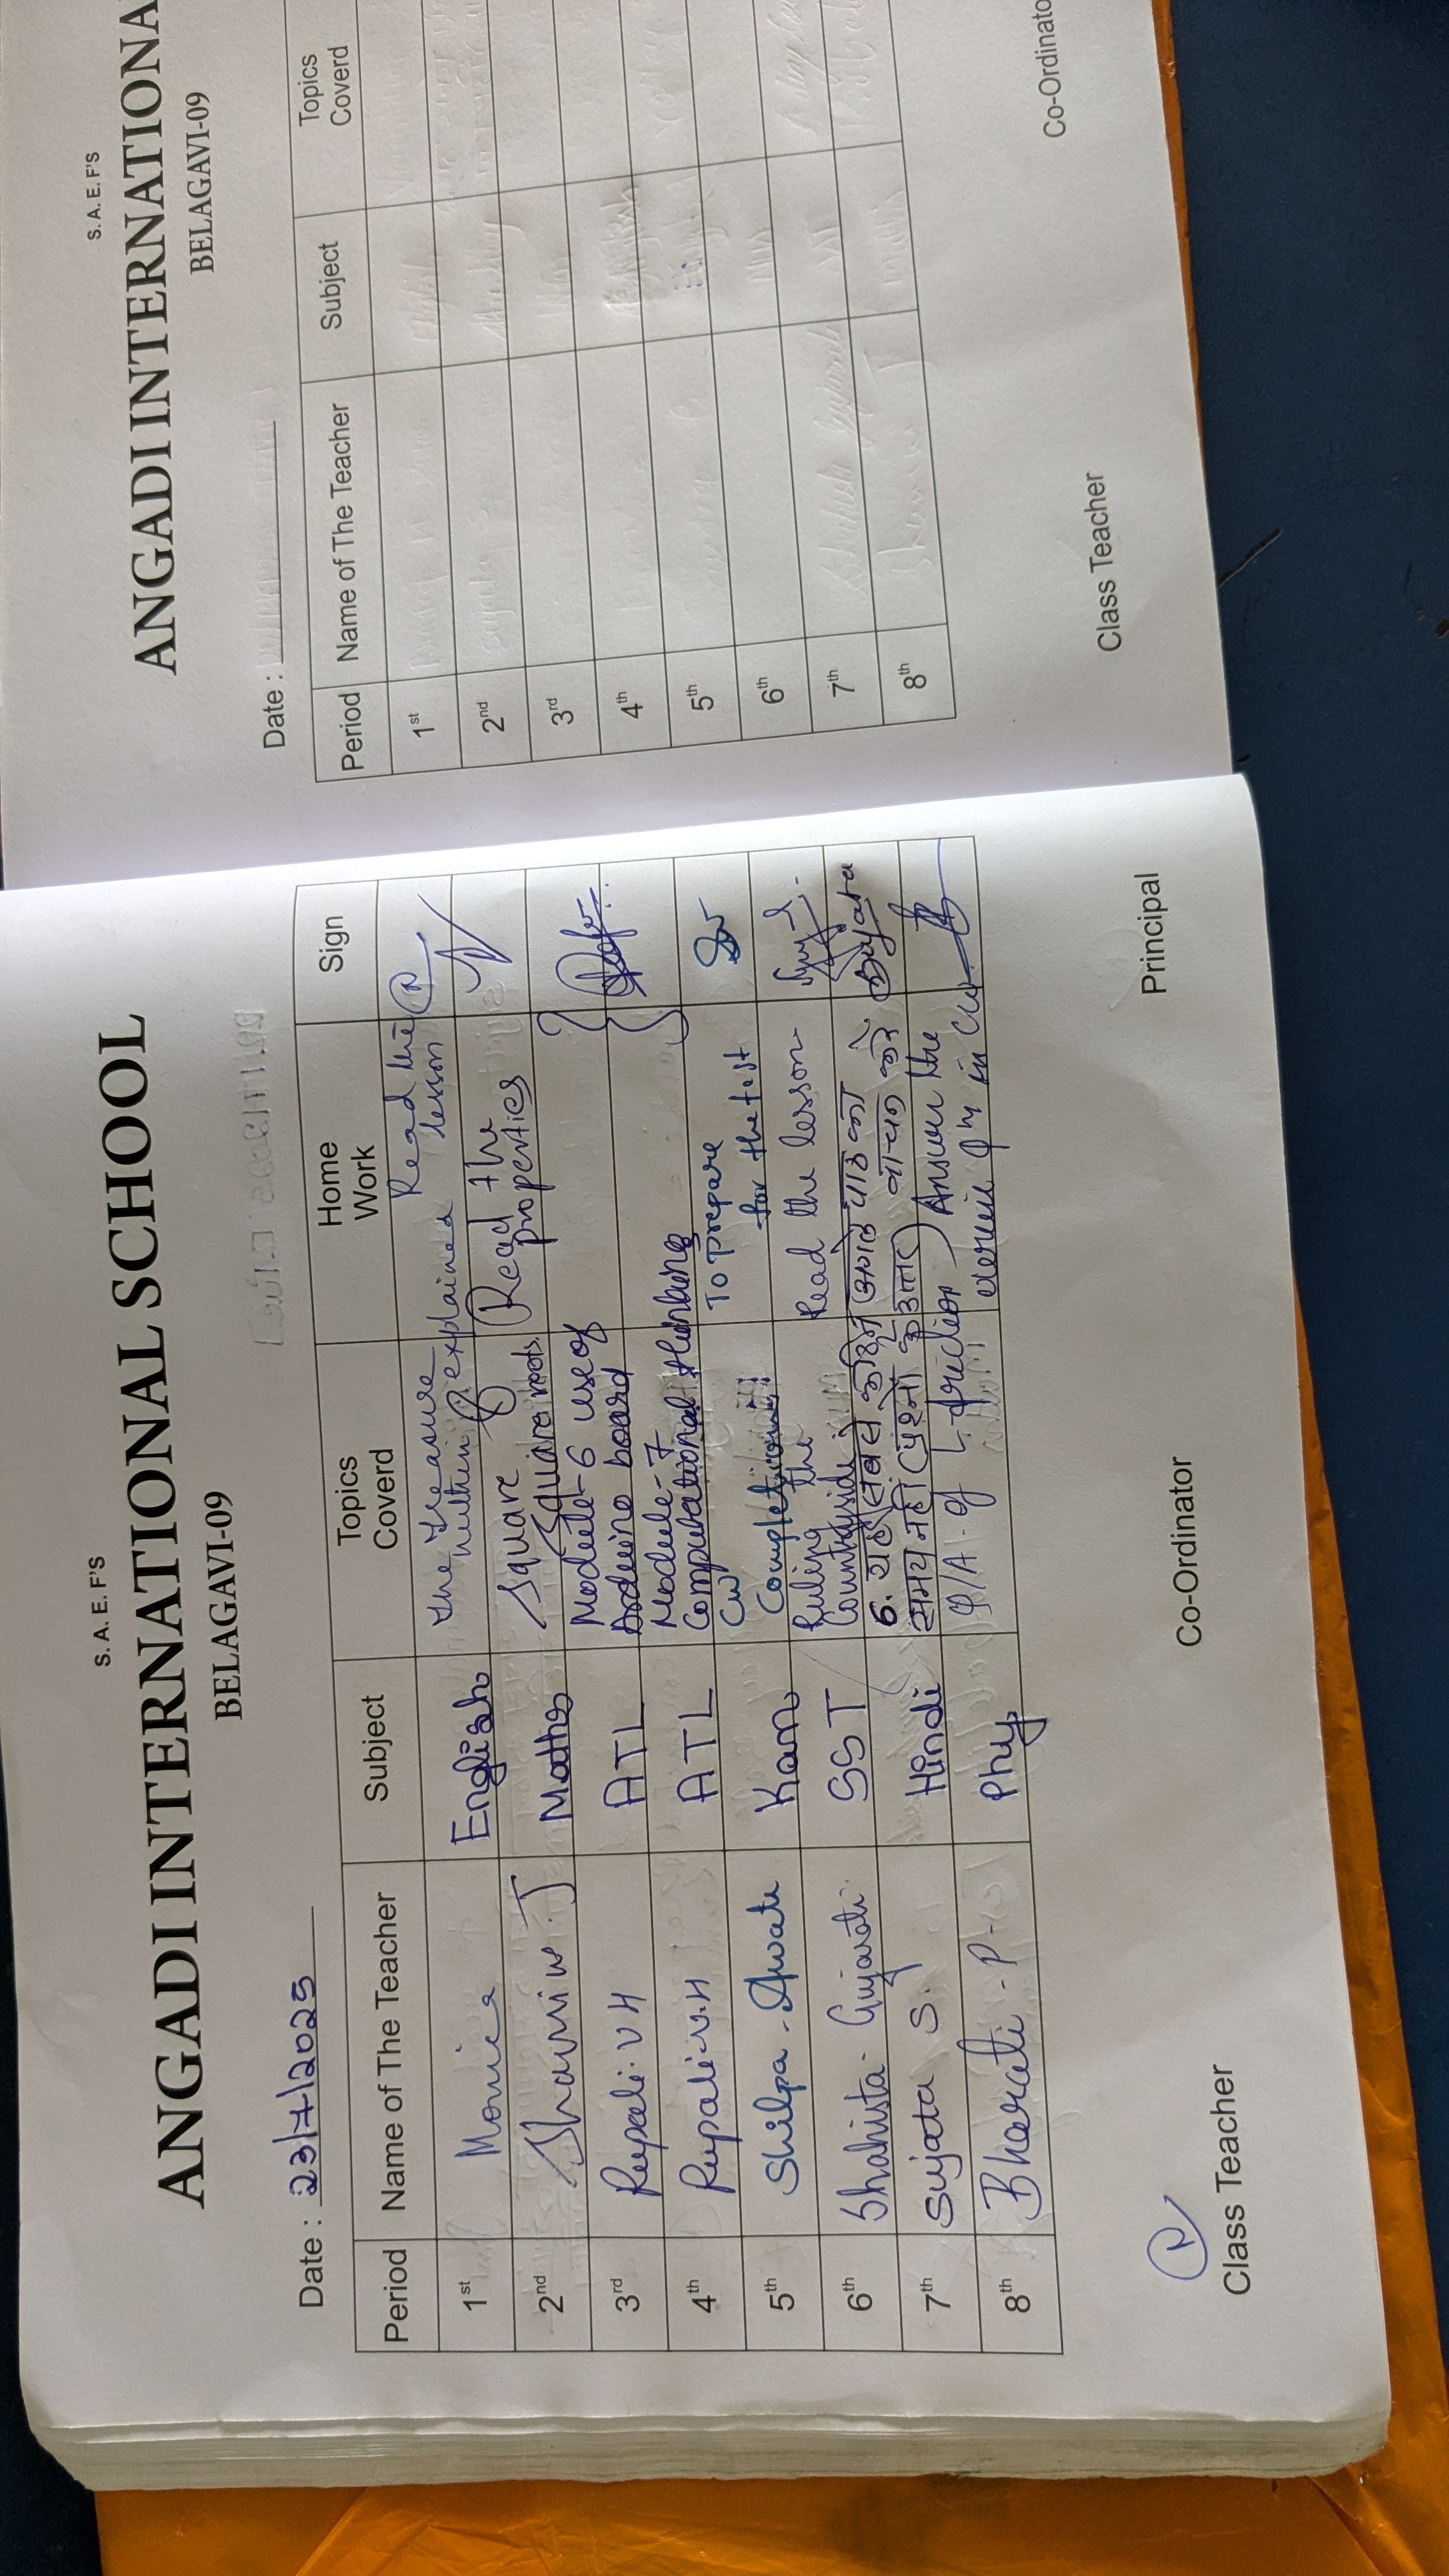 S. A. E. F'S
ANGADI INTERNATIONAL SCHOOL
BELAGAVI-09
Date : 23/7/2025
Period Name of The Teacher Subject Topics Coverd Home Work Sign
1st Monica English The treasure within explained Read the lesson
2nd J Maths Square & Square roots. Read the properties
3rd Rupali.V.H ATL Module-6 use of Arduino board
4th Rupali.V.H ATL Module-7 Computational thinking
5th Shilpa - Awate Kan CW Completion To prepare for the test
6th Shahista Gujarati SST Ruling the Countryside Read the lesson
7th Sujata S. Hindi 6. यह सबसे कठिन समय नहीं (प्रश्नों के उत्तर) अगले पाठ का वाचन करें
8th Bharati - P Phy Q/A of L-friction Answer the exercise in CW
Class Teacher Co-Ordinator Principal
S. A. E. F'S
ANGADI INTERNATIONA
BELAGAVI-09
Date :
Period Name of The Teacher Subject Topics Coverd
1st
2nd
3rd
4th
5th
6th
7th
8th
Class Teacher Co-Ordinato